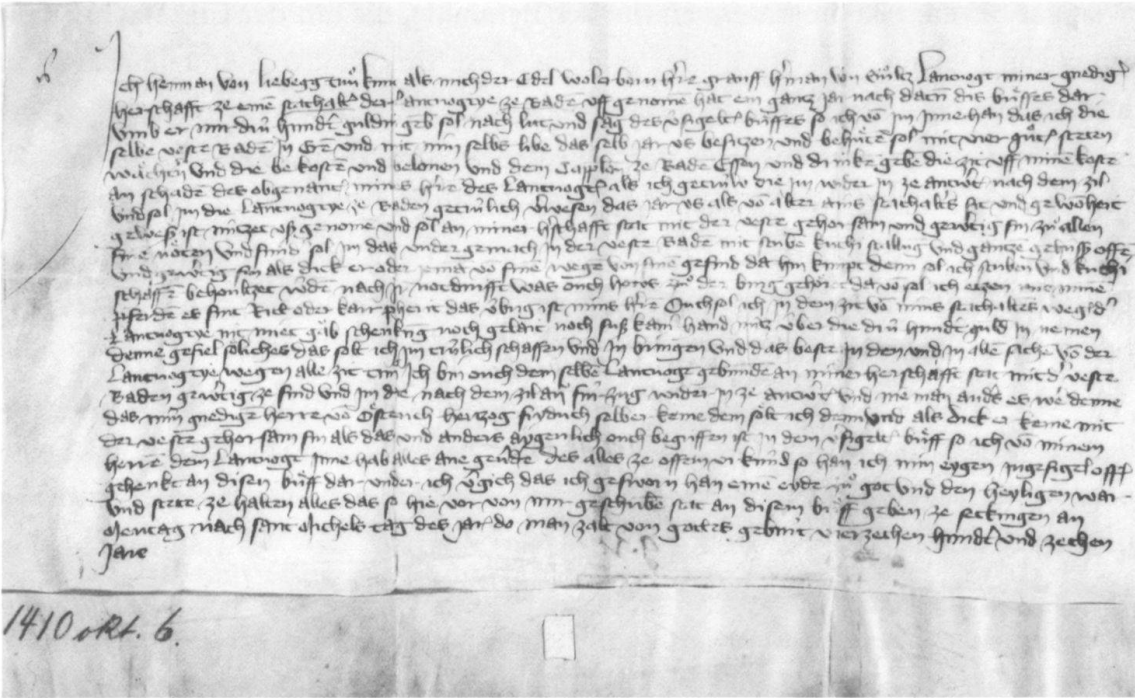 Ich Henman von Liebegg tuͦn kunt als mich der Edel wolerborn h're grauff h'man von Sultz Lantvogt miner gnedigē
Herschafft ze eine stathalt' der Lantvogtye ze Badē uff genomē hat ein gantz jar nach datū dis brieffes dar
umb er mir driu hundt guldin geb sol nach lut und sag des brieffes so ich vō im inne han das ich die
selbe veste Badē in Ere und mit min selbs libe das selb jar us besitzen und behuͤtē sol mit vier steten
wachtū und die bekostē und belonen und dem Cappplon ze Badē Essen und drinkē gebe die zit uff minē kostē
an schadē des obgenant mins h're des Lantvogt als ich getruw die im wider in ze antwt nach dem zil
und sol im die Lantvogtye ze Baden getrulich v'wesen das jar us als vō alter ains stathalts sit und gewonheit
gewesē ist nutzet uß genomē und sol an miner h'schafft stat mit der veste gehorsam und gewtig sin zuͦ allen
sinē noͤten und sunds sol im das under gemach in der veste Badē mit stube kuchi stallung und gantze offē
und gewtig sin als dick er oder jema vō sinē wegē von sinē gesind da hin kumpt denn sol ich stuben und kuchi
schaffē beholtzet wdē nach notdurfft was ouch hoͤws zuͦ der burg gehoͤrt da vō sol ich etzen mine
pferde es sint Rick oder und das uͤbrig ist mins h're Ouch sol ich in dem zit vō mins stathaltes weg d'
Lantvogtye nit miet gab schenkung noch gelait noch suß kain hand nutz uͤber die driu hundt guld in nemen
denne gefiel soͤliches das solt ich im trulich schaffen und in bringen und das beste in dem und in allē sache vō der
Lantvogtye wegen alle zit tun Ich bin ouch dem selbē Lantvogt gebundē an miner herschafft stat mit d' veste
Baden gewtig ze sind und im die nach dem zil an fur zug wider in ze antwt und nie man ands es we denne
das min gnediger herre vō Oͤsterich hertzog fridrich selber keme dem soͤlt ich denn und als dick er keme mit
der veste gehorsam sin als das und anders aygenlich ouch begriffen ist in dem brieff so ich vō minem
herrē dem Lantvogt inne hab alles ane geuͤdē des alles ze offem urkund so han ich min eygen ingesigel offēl
gehenkt an disen brieff dar under ich v'gich das ich gesworn han eine eyde zuͦ got und den heyligen war
und stete ze halten alles das so hie vor von mir geschribē stat an disem brieff geben ze Seckingen an
Mentag nach sant Michels tag des jar do man zalt von gottes geburt vierzechen hundt und zechen
Jare
1410 okt. 6.